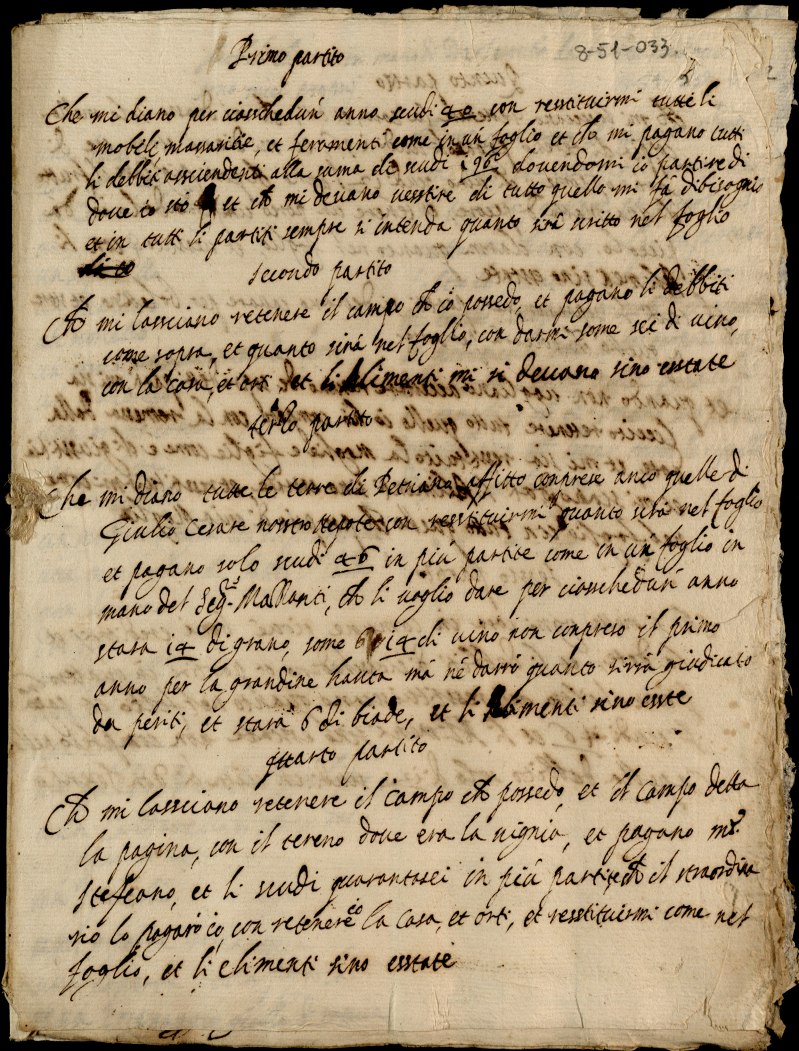 8-51-033.
Primo partito
Che mi diano per ciascheduñ anno scudi 40 con resstituirmi tutte li
mobeli, massaritie, et feramenti come in uñ foglio et ch̃ mi pagano tutti
li debbiti assciendenti alla suma de scudi 196 dovendomi io partire di
dove io sto et ch̃ mi devano vesstire di tutto quello mi fà dibisognio
et in tutti li partiti sempre si intenda quanto sirà scritto nel foglio
secondo partito
Ch̃ mi lasciano retenere il campo ch̃ io possedo, et pagano li debbiti
come sopra, et quanto sirà nel foglio, con darmi some sei di vino,
con la casa, et orti et li elimenti mi si devano sino esstate
terzo partito
Che mi diano tutte le terre di Petriano affitto conprese anco quelle di
Giulio Cesare nostro nepote con resstituirmi quanto sirà nel foglio
et pagano solo scudi 46 in più partite come in uñ foglio in
mano del Seg.r Ma Ponti, ch̃ li voglio dare per ciascheduñ anno
stara 14 di grano, some 6 di vino non conpreso il primo
anno per la grandine hauta mà nè darrò quanto sirrà giudicato
da periti, et stara 6 di biade, et li elimenti sino esste
quarto partito
Ch̃ mi lassciano retenere il campo ch̃ possedo, et il campo della
la pagina, con il tereno dove era la vignia, et pagano m.r
steffano, et li scudi quarantasei in più partite ch̃ il straordina
rio lo pagarò io, con retenere io la casa, et orti, et resstituirmi come nel
foglio, et li elimenti sino esstate